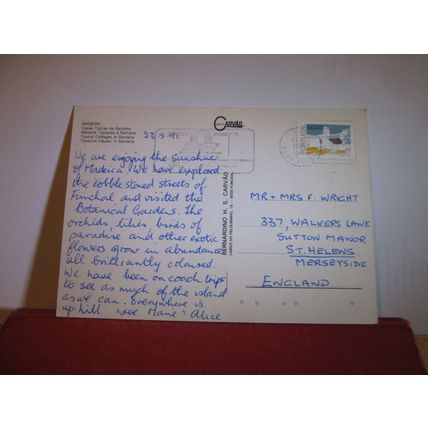 MADEIRA
Casas Típicas de Santana
Maisons Typiques à Santana
Typical Cottages at Santana
Typische Häuser in Santana
CARVÃO
23.5.91
We are enjoying the sunshine
of Madeira. We have explored
the cobblestoned streets of
Funchal and visited the
Botanical Gardens. The
orchids lilies birds of
paradise and other exotic
flowers grow in abundance
all brilliantly coloured.
We have been on coach trips
to see as much of the island
as we can. Everywhere is
up hill Love Marie Alice
BERNARDINO H. S. CARVÃO
MR + MRS F. WRIGHT
337, WALKERS LANE
SUTTON MANOR
ST. HELENS
MERSEYSIDE
ENGLAND